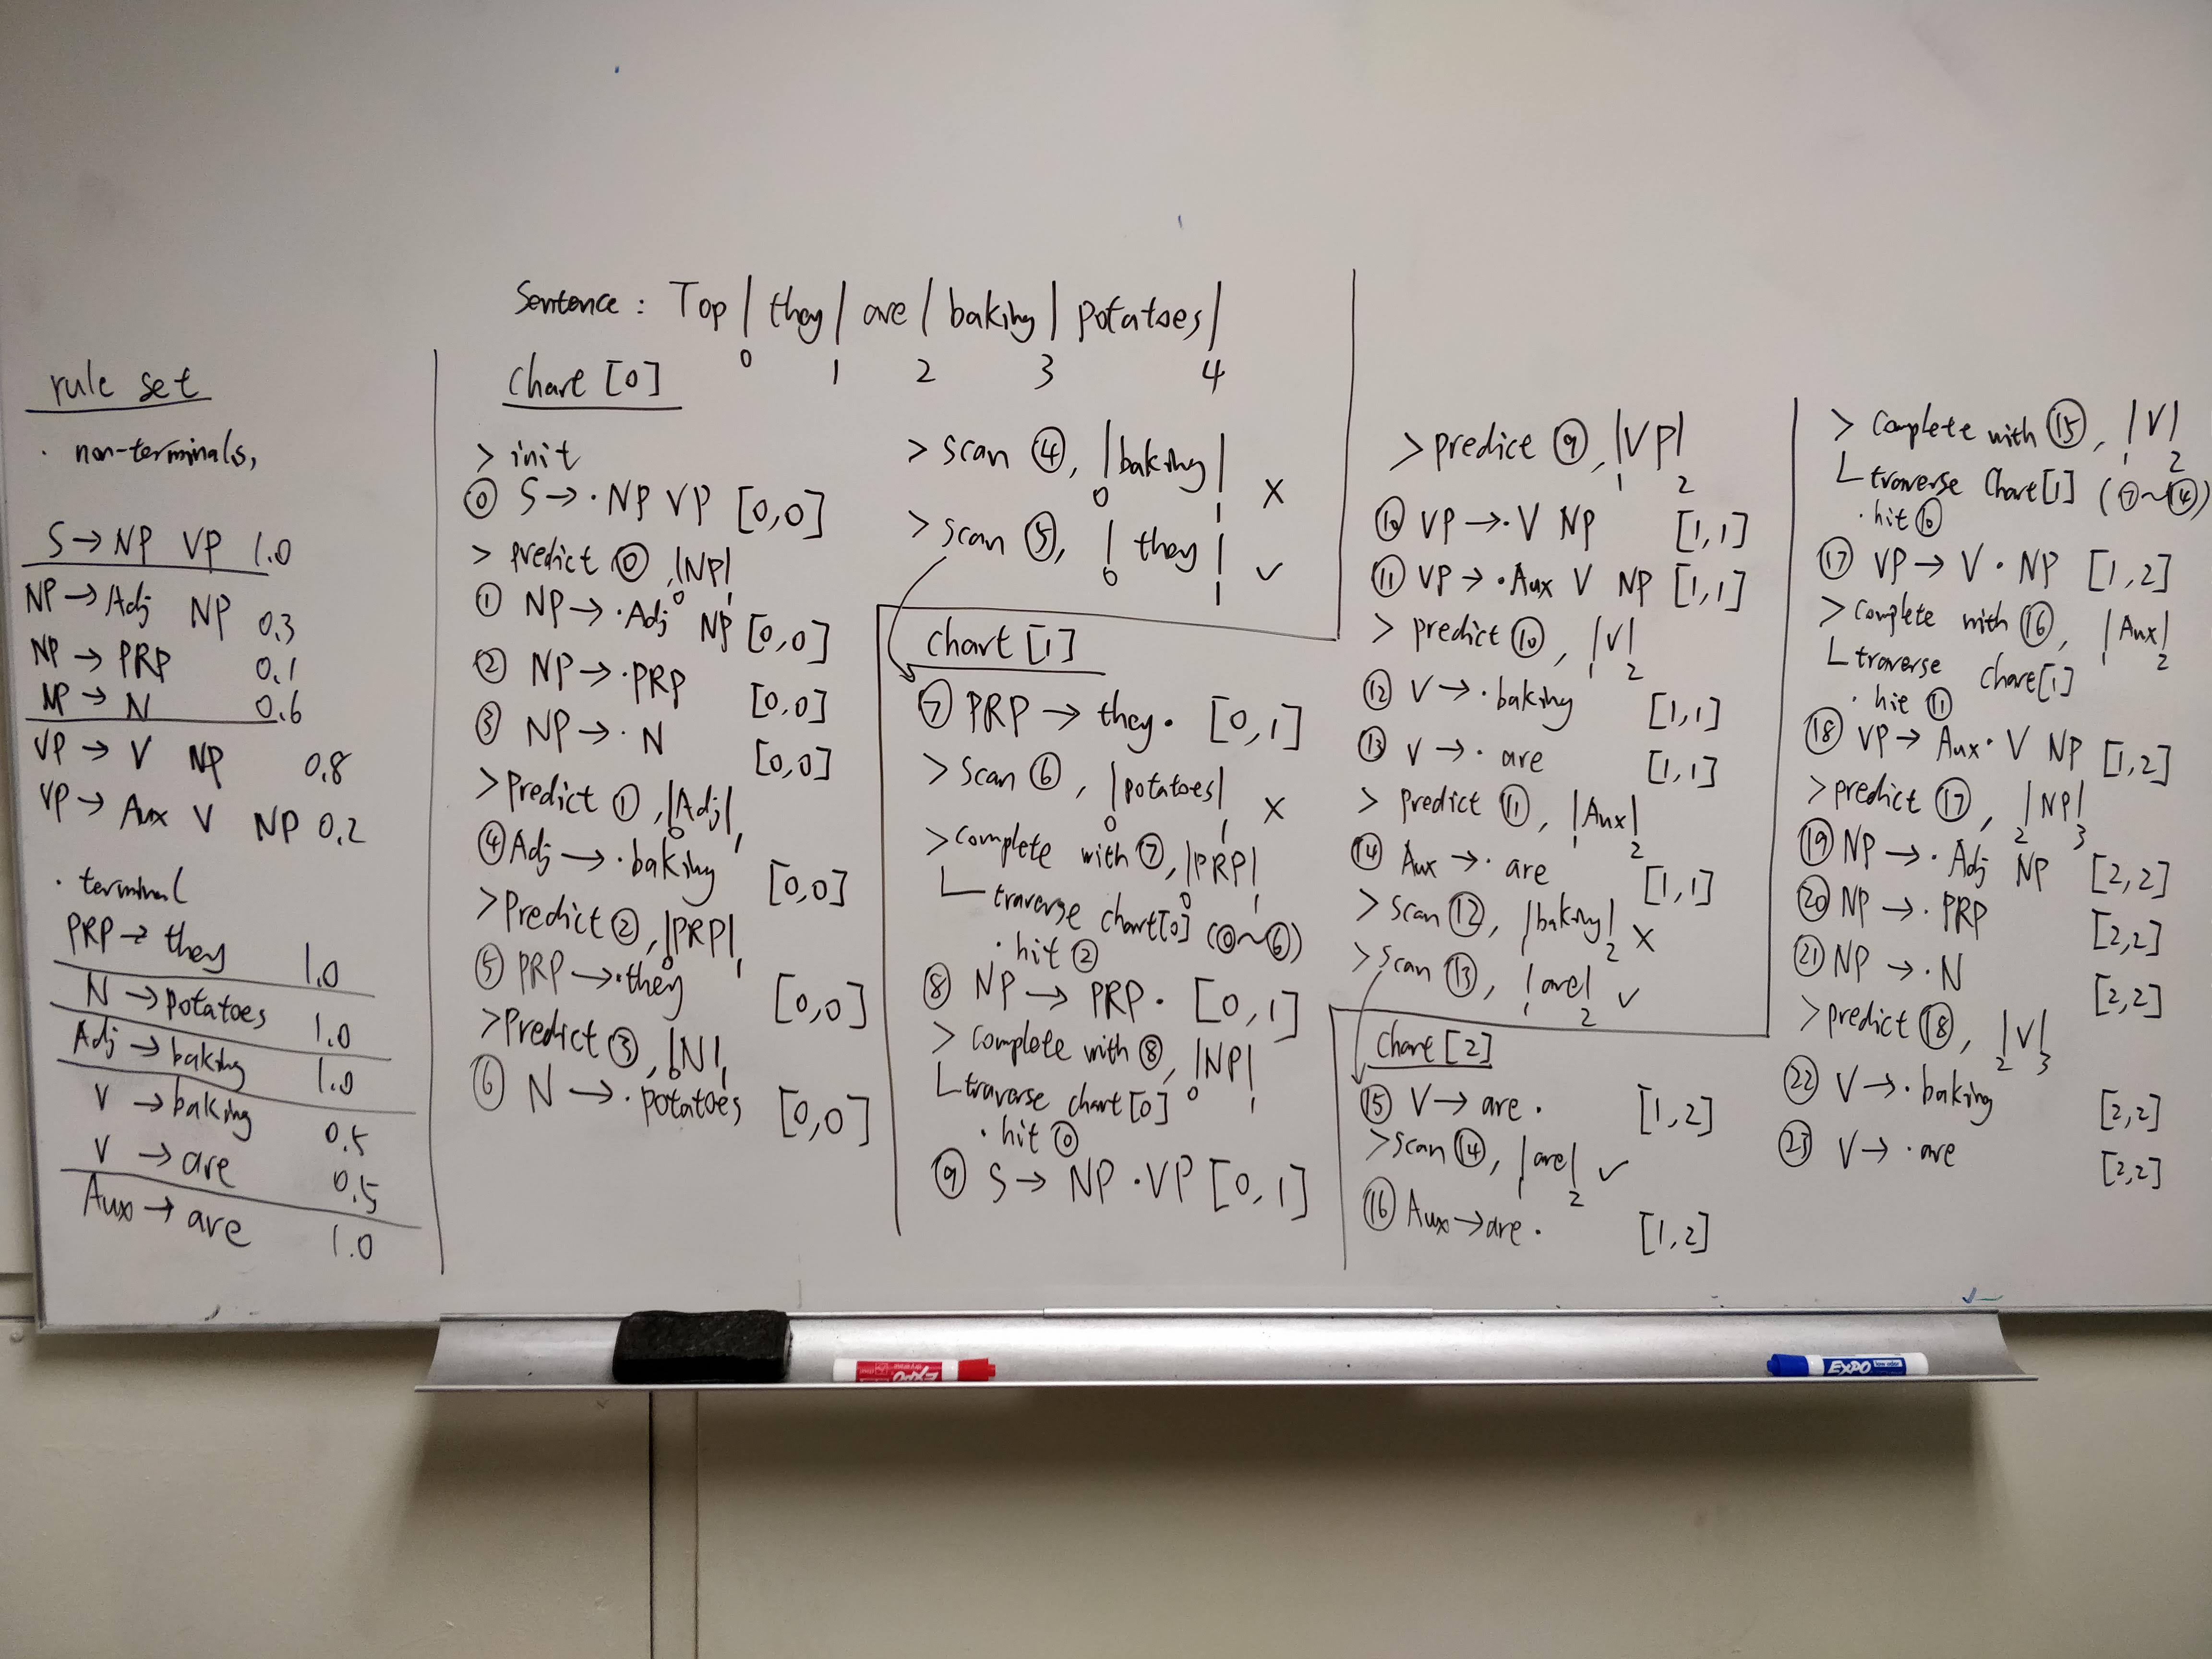 Sentence : Top | they | are | baking | potatoes |
0 1 2 3 4
rule set
· non-terminals,
S → NP VP 1.0
NP → Adj NP 0.3
NP → PRP 0.1
NP → N 0.6
VP → V NP 0.8
VP → Aux V NP 0.2
· terminal
PRP → they 1.0
N → potatoes 1.0
Adj → baking 1.0
V → baking 0.5
V → are 0.5
Aux → are 1.0
Chart [0]
> init
⓪ S → · NP VP [0,0]
> predict ⓪, |NP|
0 1
① NP → · Adj NP [0,0]
② NP → · PRP [0,0]
③ NP → · N [0,0]
> Predict ①, |Adj|
0 1
④ Adj → · baking [0,0]
> Predict ②, |PRP|
0 1
⑤ PRP → · they [0,0]
> Predict ③, |N|
0 1
⑥ N → · potatoes [0,0]
> scan ④, |baking| ×
0 1
> scan ⑤, | they | ✓
0 1
Chart [1]
⑦ PRP → they · [0,1]
> scan ⑥, |potatoes| ×
0 1
> complete with ⑦, |PRP|
0 1
└ traverse chart[0] (⓪~⑥)
· hit ②
⑧ NP → PRP · [0,1]
> complete with ⑧, |NP|
0 1
└ traverse chart[0]
· hit ⓪
⑨ S → NP · VP [0,1]
> predict ⑨, |VP|
1 2
⑩ VP → · V NP [1,1]
⑪ VP → · Aux V NP [1,1]
> predict ⑩, |V|
1 2
⑫ V → · baking [1,1]
⑬ V → · are [1,1]
> predict ⑪, |Aux|
1 2
⑭ Aux → · are [1,1]
> scan ⑫, |baking| ×
1 2
> scan ⑬, |are| ✓
1 2
Chart [2]
⑮ V → are · [1,2]
> scan ⑭, |are| ✓
1 2
⑯ Aux → are · [1,2]
> Complete with ⑮, |V|
1 2
└ traverse Chart[1] (⑦~⑭)
· hit ⑩
⑰ VP → V · NP [1,2]
> complete with ⑯, |Aux|
1 2
└ traverse Chart[1]
· hit ⑪
⑱ VP → Aux · V NP [1,2]
> predict ⑰, |NP|
2 3
⑲ NP → · Adj NP [2,2]
⑳ NP → · PRP [2,2]
㉑ NP → · N [2,2]
> predict ⑱, |V|
2 3
㉒ V → · baking [2,2]
㉓ V → · are [2,2]
EXPO
EXPO low odor